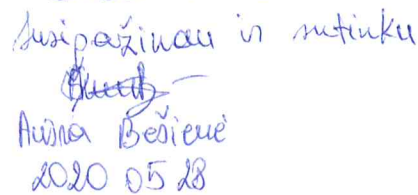 Susipažinau ir sutinku
Aušra Bešienė
2020 05 28